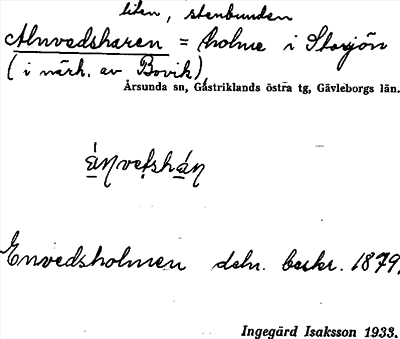 liten, stenbunden
Alnvedsharen = holme i Storsjön
(i närh. av Bovik),
Årsunda sn, Gästriklands östra tg, Gävleborgs län.
Envedsholmen deln. beskr. 1879.
Ingegärd Isaksson 1933.